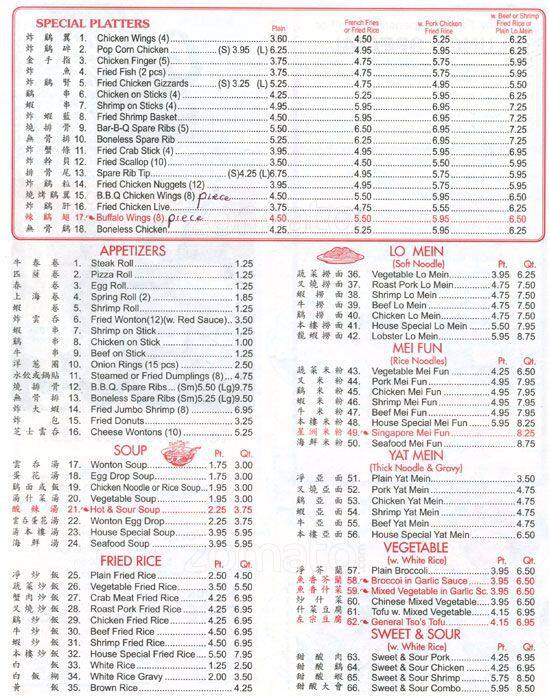 SPECIAL PLATTERS
Plain
French Fries or Fried Rice
w. Pork Chicken Fried Rice
w. Beef or Shrimp Fried Rice or Plain Lo Mein
炸鷄翼 1. Chicken Wings (4) 3.60 4.50 5.25 6.25
炸鷄碎 2. Pop Corn Chicken (S) 3.95 (L) 6.25 4.95 5.95 6.25
金手指 3. Chicken Finger (5) 3.75 4.75 5.75 5.95
炸魚 4. Fried Fish (2 pcs) 3.75 4.75 5.75 5.95
炸鷄腎 5. Fried Chicken Gizzards (S) 3.25 (L) 5.25 4.75 5.75 5.95
鷄串 6. Chicken on Sticks (4) 4.25 5.25 6.25
蝦串 7. Shrimp on Sticks (4) 4.95 5.95 6.95 7.25
炸蝦籃 8. Fried Shrimp Basket 4.50
燒排骨 9. Bar-B-Q Spare Ribs (5) 5.50 6.50
無骨排 10. Boneless Spare Rib 5.25
炸蟹條 11. Fried Crab Stick (4) 3.95
炸幹貝 12. Fried Scallop (10) 3.50
排骨尾 13. Spare Rib Tip (S)4.25 (L)6.75
炸鷄粒 14. Fried Chicken Nuggets (12) 3.95
燒烤鷄翼 15. B.B.Q Chicken Wings (8) piece 4.50
炸鷄肝 16. Fried Chicken Live 3.75
辣鷄翅 17. Buffalo Wings (8) piece 4.50 5.50 5.95 6.50
無骨鷄 18. Boneless Chicken 4.25
APPETIZERS
牛春卷 1. Steak Roll 1.25
匹薩卷 2. Pizza Roll 1.25
春卷 3. Egg Roll 1.25
上海卷 4. Spring Roll (2) 1.85
蝦卷 5. Shrimp Roll 1.25
炸雲吞 6. Fried Wonton (12)(w. Red Sauce) 3.50
蝦串 7. Shrimp on Stick 1.25
鷄串 8. Chicken on Stick 1.00
牛串 9. Beef on Stick 1.25
洋蔥圈 10. Onion Rings (15 pcs) 2.50
水餃或鍋貼 11. Steamed or Fried Dumplings (8) 4.75
燒排骨 12. B.B.Q. Spare Ribs (Sm)5.50 (Lg)9.75
無骨排 13. Boneless Spare Ribs (Sm)5.25 (Lg)9.50
炸大蝦 14. Fried Jumbo Shrimp (8) 6.95
炸包 15. Fried Donuts 3.25
芝士雲吞 16. Cheese Wontons (10) 5.25
SOUP Pt. Qt.
雲吞湯 17. Wonton Soup 1.75 3.00
蛋花湯 18. Egg Drop Soup 1.75 3.00
鷄面或飯 19. Chicken Noodle or Rice Soup 1.95 3.00
菜什湯 20. Vegetable Soup 1.95 3.00
酸辣湯 21. Hot & Sour Soup 2.25 3.75
雲吞蛋花湯 22. Wonton Egg Drop 2.25 3.75
本樓湯 23. House Special Soup 3.95 5.95
海鮮湯 24. Seafood Soup 3.95 5.95
FRIED RICE Pt. Qt.
淨炒飯 25. Plain Fried Rice 2.50 4.50
蔬菜炒飯 26. Vegetable Fried Rice 3.50 5.50
蟹肉炒飯 27. Crab Meat Fried Rice 4.25 6.95
叉燒炒飯 28. Roast Pork Fried Rice 4.25 6.95
鷄炒飯 29. Chicken Fried Rice 4.25 6.95
牛炒飯 30. Beef Fried Rice 4.50 6.95
蝦炒飯 31. Shrimp Fried Rice 4.50 6.95
本樓炒飯 32. House Special Fried Rice 5.50 7.95
白飯 33. White Rice 1.25 2.50
白飯糊 34. White Rice Gravy 2.00 3.50
黃飯 35. Brown Rice 4.25
LO MEIN
(Soft Noodle) Pt. Qt.
蔬菜撈面 36. Vegetable Lo Mein 3.95 6.25
叉燒撈面 37. Roast Pork Lo Mein 4.75 7.50
蝦撈面 38. Shrimp Lo Mein 4.75 7.50
牛撈面 39. Beef Lo Mein 4.75 7.50
鷄撈面 40. Chicken Lo Mein 4.75 7.50
本樓撈面 41. House Special Lo Mein 5.50 7.95
龍蝦撈面 42. Lobster Lo Mein 5.95 8.75
MEI FUN
(Rice Noodles) Pt. Qt.
蔬菜米粉 43. Vegetable Mei Fun 4.25 6.50
叉米粉 44. Pork Mei Fun 4.95 7.95
鷄米粉 45. Chicken Mei Fun 4.95 7.95
蝦米粉 46. Shrimp Mei Fun 4.95 7.95
牛米粉 47. Beef Mei Fun 4.95 7.95
本樓米粉 48. House Special Mei Fun 5.95 8.25
星洲米粉 49. Singapore Mei Fun 8.25
海鮮米粉 50. Seafood Mei Fun 8.75
YAT MEIN
(Thick Noodle & Gravy)
淨面 51. Plain Yat Mein 3.50
叉燒面 52. Pork Yat Mein 4.75
鷄面 53. Chicken Yat Mein 4.75
蝦面 54. Shrimp Yat Mein 4.75
牛面 55. Beef Yat Mein 4.75
本樓面 56. House Special Yat Mein 6.50
VEGETABLE
(w. White Rice) Pt. Qt.
淨芥蘭 57. Plain Broccoli 3.95 6.50
魚香芥蘭 58. Broccoi in Garlic Sauce 3.95 6.50
魚香什菜 59. Mixed Vegetable in Garlic Sc. 3.95 6.50
炒什菜 60. Chinese Mixed Vegetable 3.95 6.50
什菜豆腐 61. Tofu w. Mixed Vegetable 4.15 6.95
左宗豆腐 62. General Tso's Tofu 4.15 6.95
SWEET & SOUR
(w. White Rice) Pt. Qt.
甜酸肉 63. Sweet & Sour Pork 4.25 6.95
甜酸鷄 64. Sweet & Sour Chicken 4.25 6.95
甜酸蝦 65. Sweet & Sour Shrimp 5.95 8.50
甜酸大會 66. Sweet & Sour Combo 5.95 8.50